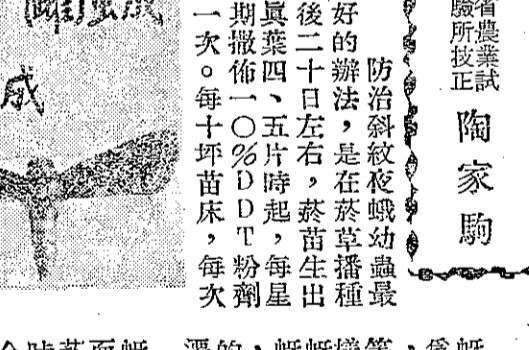 省農業試
驗所技正
陶家駒
防治斜紋夜蛾幼蟲最
好的辦法，是在菸草播種
後二十日左右，菸苗生出
眞葉四、五片時起，每星
期撒佈一〇％DDT粉劑
一次。每十坪苗床，每次
成